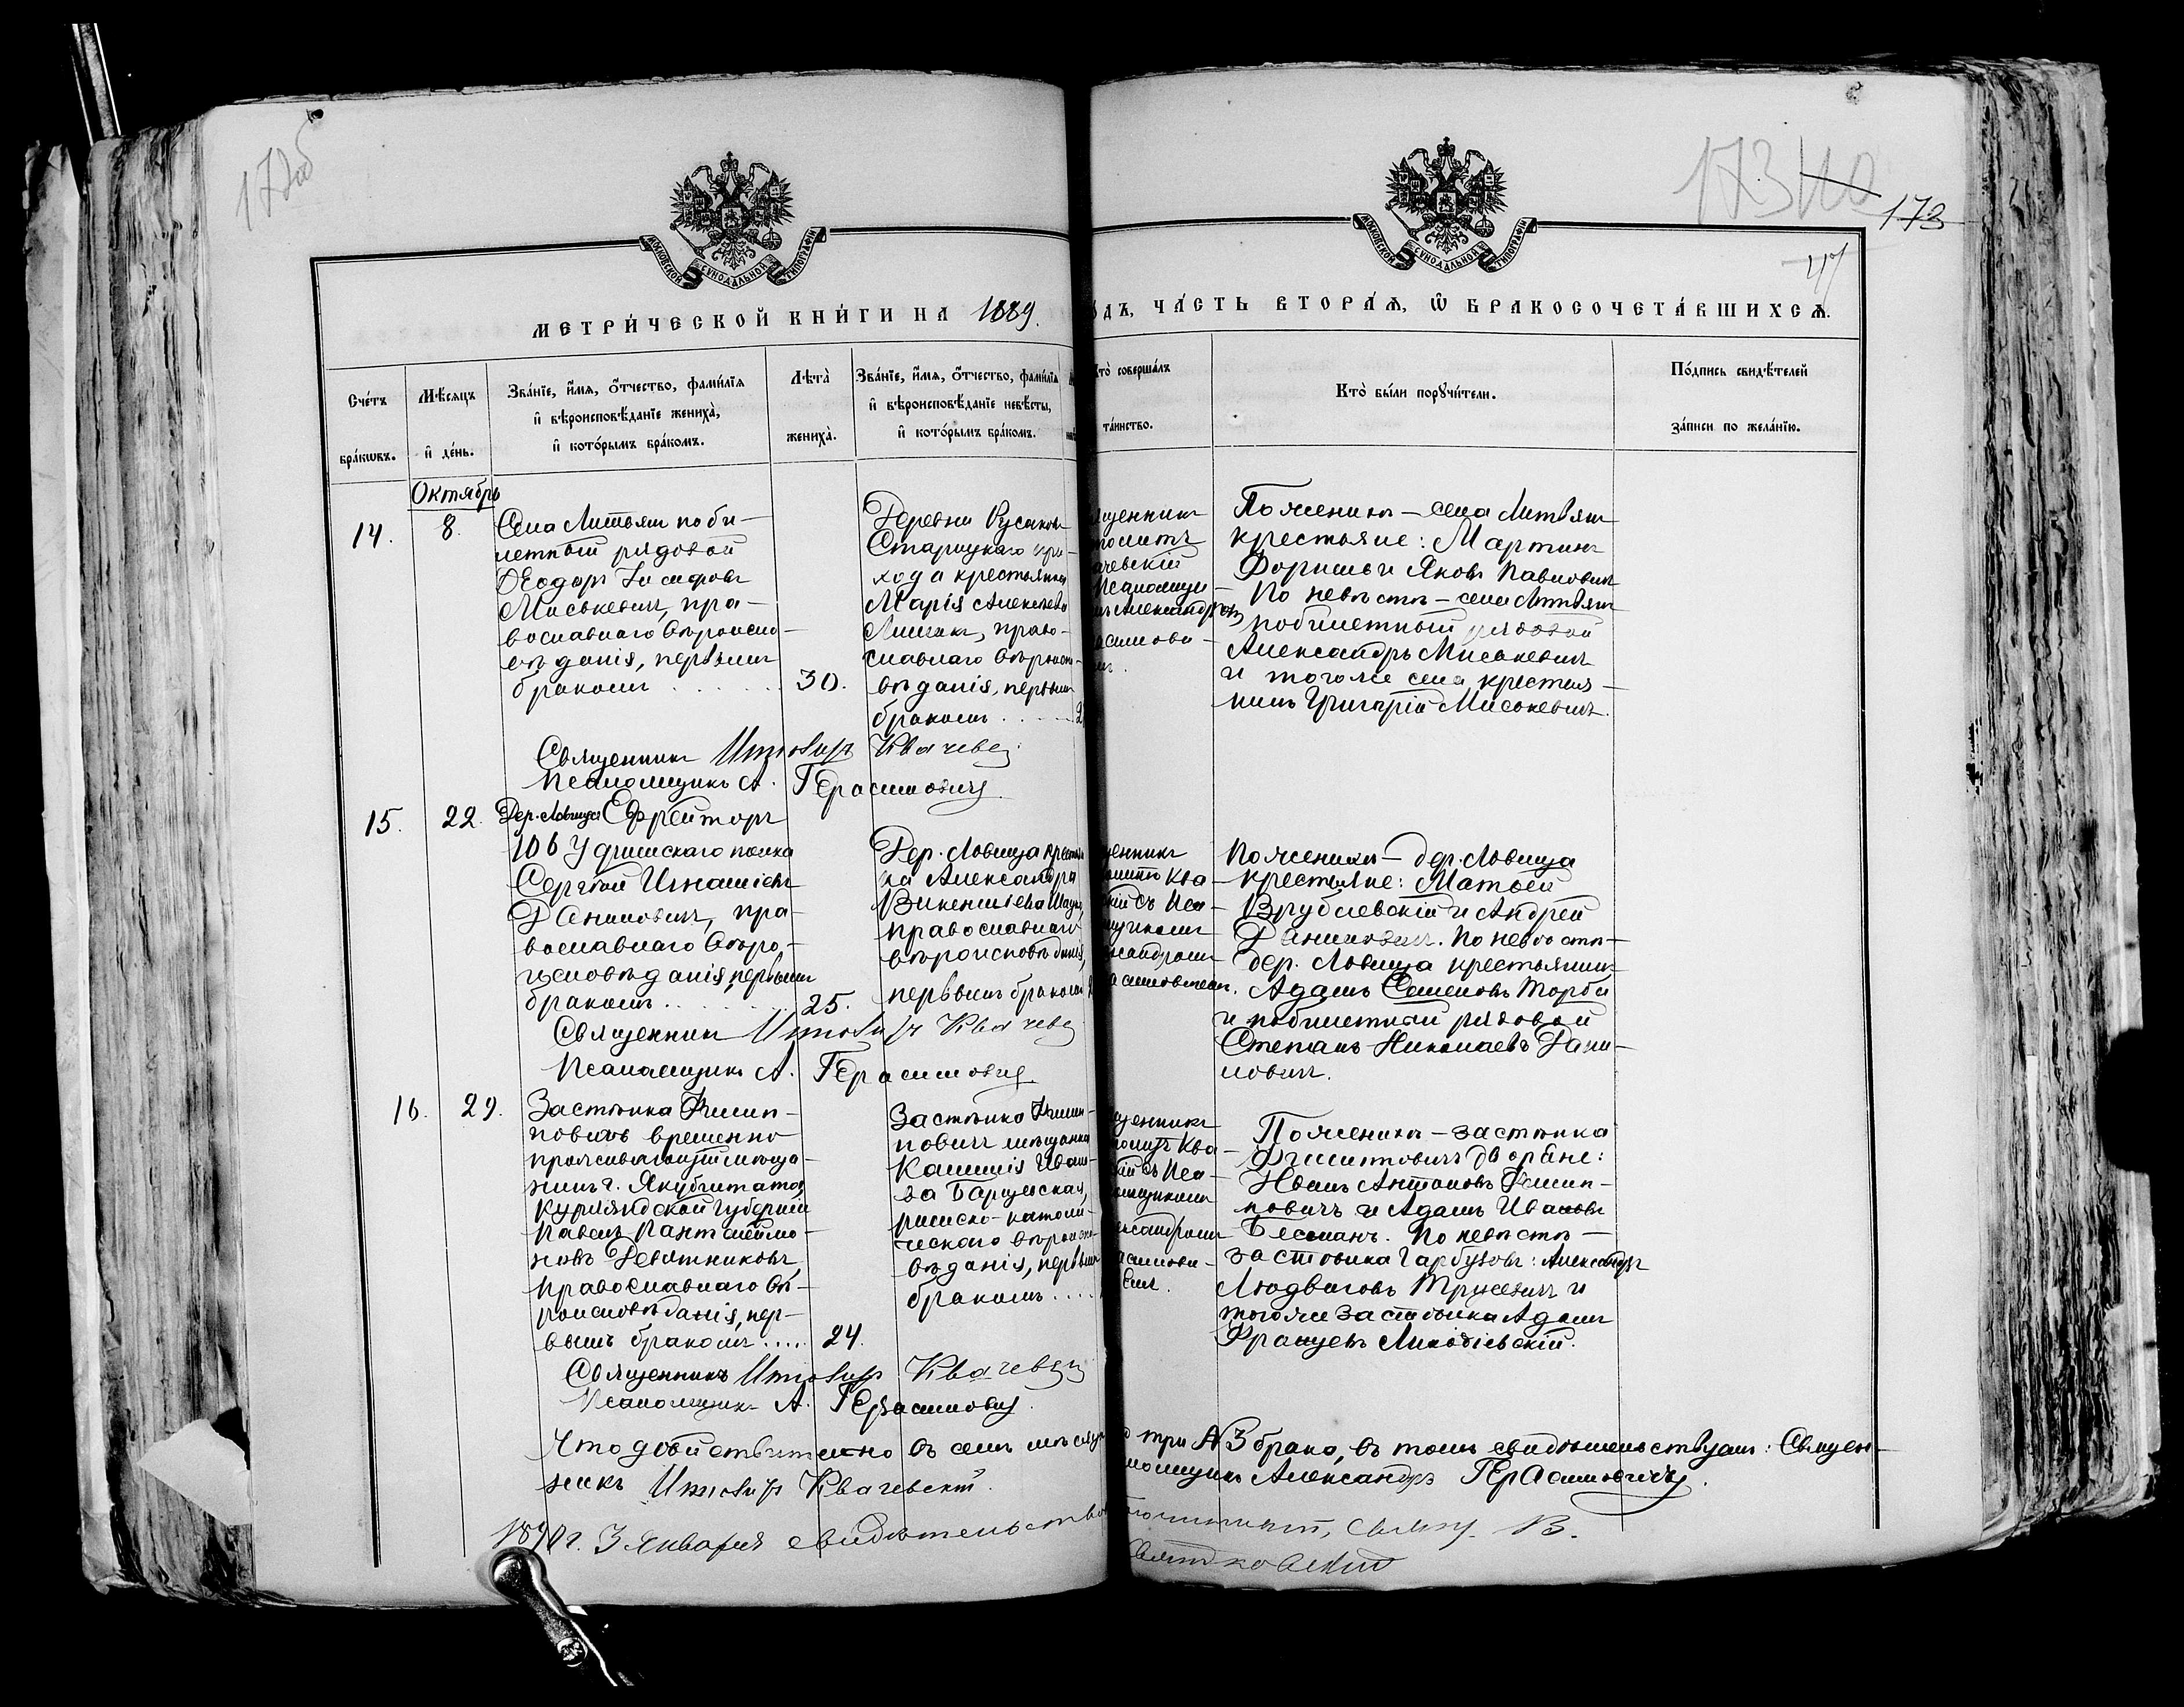 172об
173
173
МОСКОВСКОЙ СѴНОДАЛЬНОЙ ТИПОГРАФІИ
МОСКОВСКОЙ СѴНОДАЛЬНОЙ ТИПОГРАФІИ
МЕТРИ́ЧЕСКОЙ КНИ́ГИ НА 1889.
ОДЪ, ЧА́СТЬ ВТОРА́Я, Ѡ БРАКОСОЧЕТА́ВШИХСЯ.
Сче́тъ
бра́кωвъ.
Мѣ́сяцъ
и҆ де́нь.
Зва́нїе, и҆́мя, ѻ҆́тчество, фами́лїя
и҆ вѣроисповѣ́данїе жениха̀,
и҆ кото́рымъ бра́комъ.
Лѣта̀
жениха̀.
Зва́нїе, и҆́мя, ѻ҆́тчество, фами́лїя
и҆ вѣроисповѣ́данїе невѣ́сты,
и҆ кото́рымъ бра́комъ.
то̀ соверша́лъ
та́инство.
Кто̀ бы́ли порꙋчи́тели.
По́дпись свидѣ́телей
за́писи по жела́нїю.
Октябрь
14.
8.
Села Литвянъ поби-
летный рядовой
Ѳеодоръ Іосифовъ
Миськевичъ, пра-
вославнаго вѣроиспо-
вѣданія, первымъ
бракомъ
30.
Деревни
Старицкаго при-
хода крестьянка
Марія Алексѣева
право-
славнаго вѣроиспо-
вѣданія, первымъ
бракомъ
щенникъ
политъ
чевскій
псаломщи-
Александромъ
асимови-
По женихѣ - села Литвянъ
крестьяне: Мартинъ
и Яковъ Павловичъ
По невѣстѣ - села Литвянъ
побилетный рядовой
Александръ Миськевичъ
и того же села крестья-
нинъ Григорій Миськевичъ.
Священникъ Ипполитъ Квачевс
Псаломщикъ А. Герасимовичъ.
15.
22.
Дер. Ловища Ефрейторъ
106 Уфимскаго полка
Сергѣй Игнатіевъ
Даниловичъ, пра-
вославнаго вѣро-
исповѣданія, первымъ
бракомъ
25.
Дер. Ловища крестьян
ка Александра
Викентіева
православнаго
вѣроисповѣданія,
первымъ бракомъ
щенникъ
политъ Ква-
кій съ Пса-
мщикомъ
ксандромъ
асимовичемъ.
По женихѣ - дер. Ловища
крестьяне: Матѳей
Врублевскій и Андрей
Даниловичъ. По невѣстѣ -
дер. Ловища крестьянинъ
Адамъ Семеновъ Торба
и побилетный рядовой
Степанъ Николаевъ Дани-
ловичъ.
Священникъ Ипполитъ Квачевс
Псаломщикъ А. Герасимовичъ
16.
29.
Застѣнка Филип-
повичъ временно
проживающій мѣща-
нинъ г. Якубштата,
Курляндской губерніи
Павелъ Пантелеймо-
новъ Девятниковъ,
православнаго вѣ-
роисповѣданія, пер-
вымъ бракомъ
24.
Застѣнка Филип-
повичъ мѣщанка
Камилія Ивано-
ва Барщевская,
римско-католи-
ческаго вѣроиспо-
вѣданія, первымъ
бракомъ
щенникъ
политъ Ква-
кій съ Пса-
омщикомъ
ександромъ
асимови-
емъ.
По женихѣ - застѣнка
Филипповичъ дворяне:
Иванъ Антоновъ Филип-
повичъ и Адамъ Ивановъ
Бесманъ. По невѣстѣ -
застѣнка Гарбузовъ: Александръ
Людвиговъ и
того же застѣнка Адамъ
Францевъ
Священникъ Ипполитъ Квачевск
Псаломщикъ А. Герасимовичъ.
Что дѣйствительно въ семъ мѣсяцѣ три № 3 брака, въ томъ свидѣтельствуемъ: Священ-
никъ Ипполитъ Квачевскій. ломщикъ Александръ Герасимовичъ.
1890 г. 3 Января свидѣтельствов